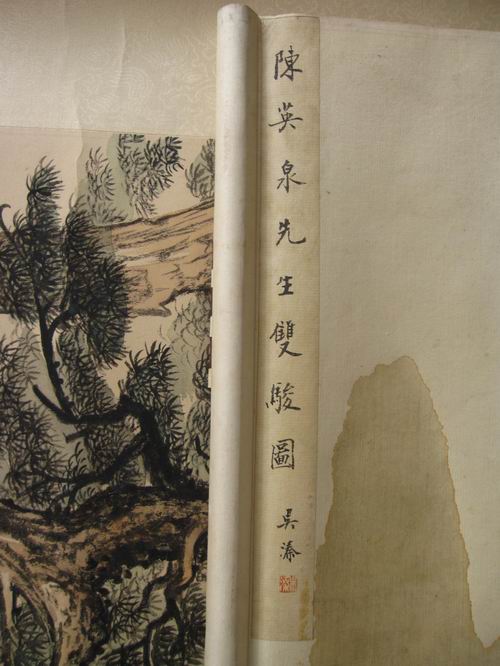 陳英泉先生雙駿圖
吳溱